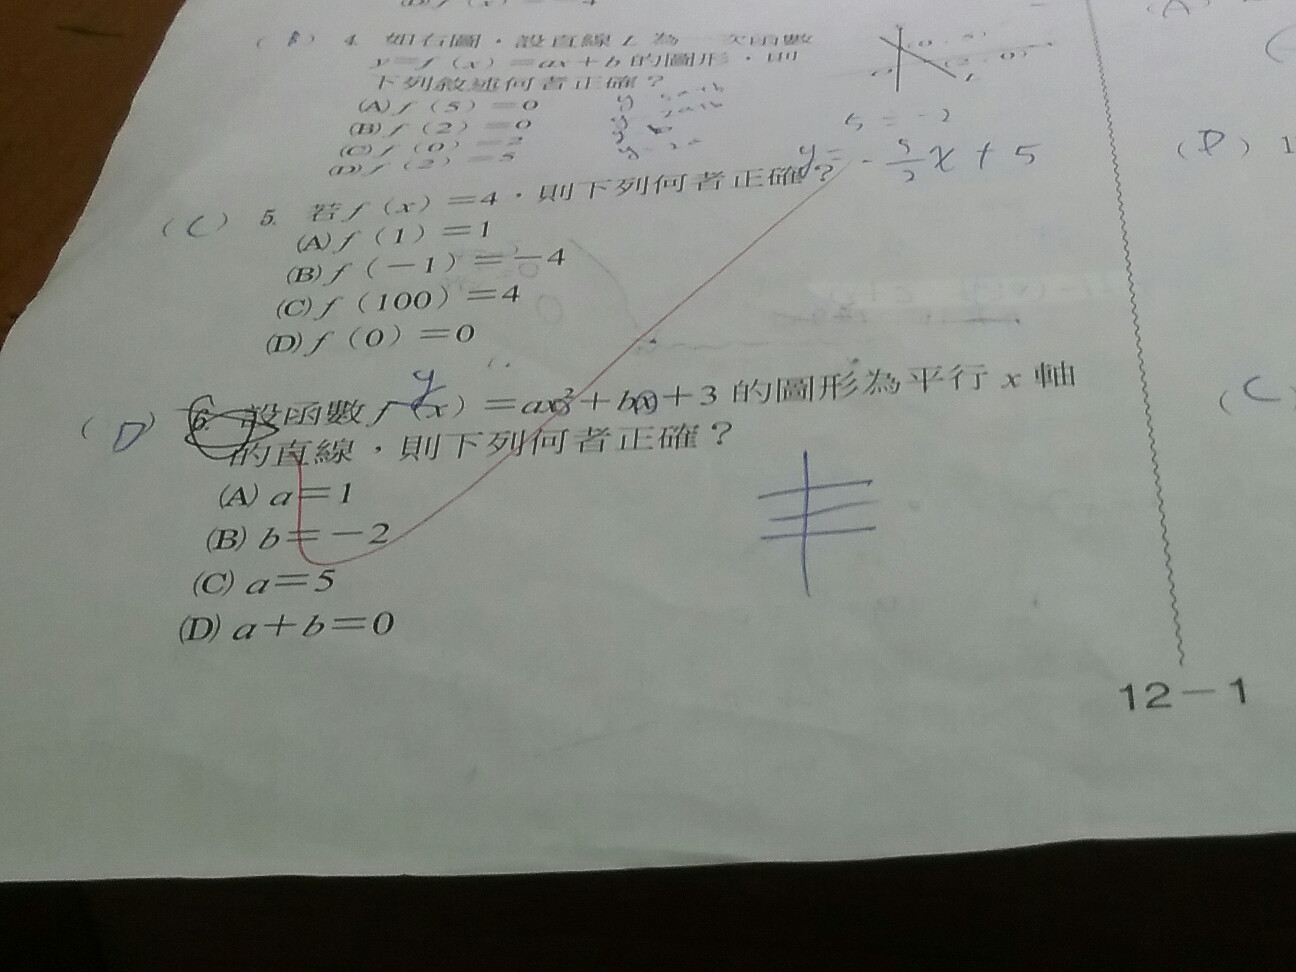 (B) 4. 如右圖，設直線 L 為一次函數
y=f(x)=ax+b 的圖形，則
下列敘述何者正確？
(A) f(5)=0
(B) f(2)=0
(C) f(0)=2
(D) f(2)=5
L
5 = -2
y= -5/2 x + 5
(C) 5. 若 f(x)=4，則下列何者正確？
(A) f(1)=1
(B) f(-1)=-4
(C) f(100)=4
(D) f(0)=0
y
(D) 6. 設函數 f(x)=ax²+bx+3 的圖形為平行 x 軸
的直線，則下列何者正確？
(A) a=1
(B) b=-2
(C) a=5
(D) a+b=0
12-1
(A)
(D) 1
(C)